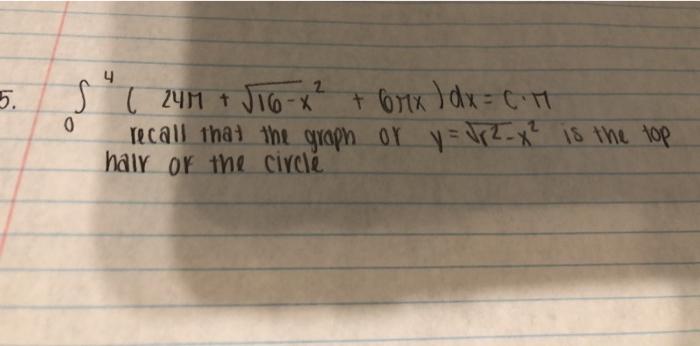 5. ∫₀⁴ ( 24π + √16-x² + 6πx ) dx = C·π
recall that the graph of y = √r²-x² is the top
half of the circle